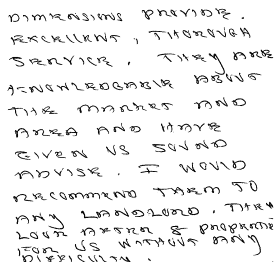 DIMENSIONS PROVIDE.
EXCELLENT, THOROUGH
SERVICE. THEY ARE
KNOWLEDGABLE ABOUT
THE MARKET AND
AREA AND HAVE
GIVEN US SOUND
ADVISE. I WOULD
RECOMMEND THEM TO
ANY LANDLORD. THEY
LOOK AFTER 8 PROPERTIE
FOR US WITHOUT ANY
DIFFICULTY.